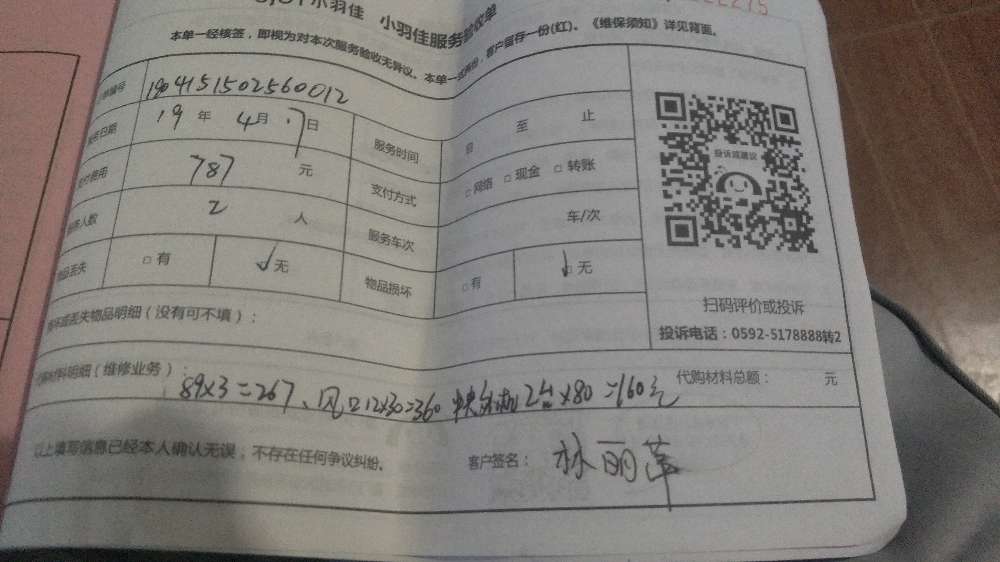 小羽佳 小羽佳服务验收单
本单一经核签，即视为对本次服务验收无异议。本单一式两份，客户留存一份(红)、《维保须知》详见背面。
编号 1904151502560012
日期 19年4月17日 服务时间 自 至 止
费用 787元 支付方式 □网络 □现金 □转账
人数 2人 服务车次 车/次
物品丢失 □有 √无 物品损坏 □有 √无
投诉或建议
扫码评价或投诉
投诉电话：0592-5178888转2
丢失物品明细（没有可不填）：
材料明细（维修业务）： 代购材料总额： 元
89x3=267、风口12x30=360 2台x80=160元
以上填写信息已经本人确认无误，不存在任何争议纠纷。 客户签名：林丽萍